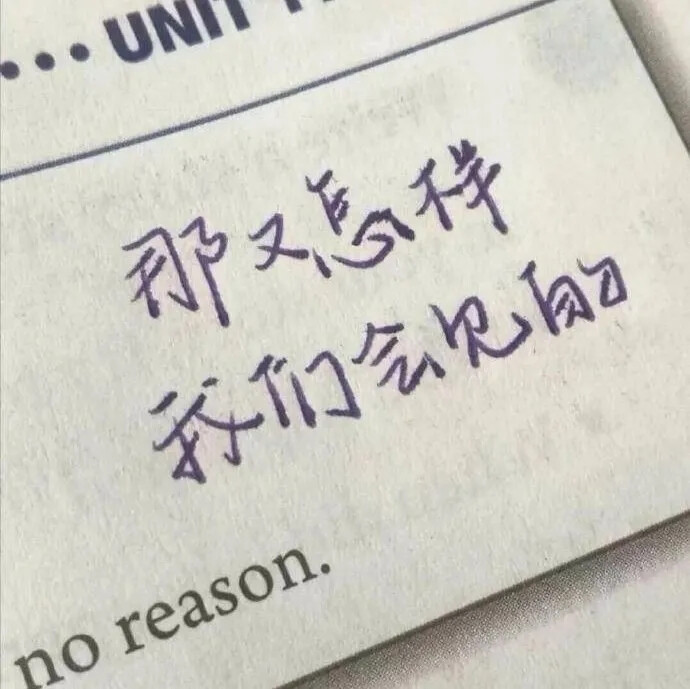 ••• UNIT
那又怎样
我们会见的
no reason.